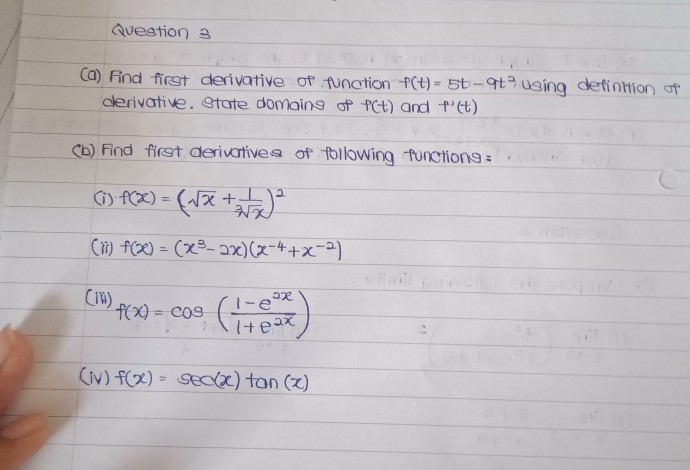 Question 3
(a) Find first derivative of function f(t) = 5t - 9t² using definition of
derivative. State domains of f(t) and f'(t)
(b) Find first derivatives of following functions:
(i) f(x) = (√x + 1/∛x)²
(ii) f(x) = (x³ - 2x)(x⁻⁴ + x⁻²)
(iii) f(x) = cos ((1 - e²ˣ)/(1 + e²ˣ))
(iv) f(x) = sec(x) tan(x)